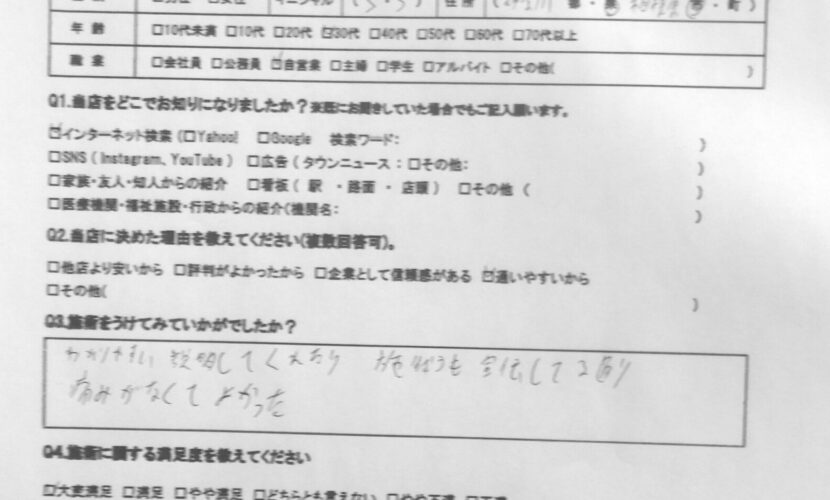 年 齢 □10代未満 □10代 □20代 ☑30代 □40代 □50代 □60代 □70代以上
職 業 □会社員 □公務員 ☑自営業 □主婦 □学生 □アルバイト □その他( )
Q1.当店をどこでお知りになりましたか？来店にお聞きしていた場合でもご記入願います。
☑インターネット検索（□Yahoo! □Google 検索ワード： ）
□SNS（Instagram、YouTube） □広告（タウンニュース：□その他： ）
□家族・友人・知人からの紹介 □看板（ 駅 ・路面 ・ 店頭） □その他（ ）
□医療機関・福祉施設・行政からの紹介（機関名： ）
Q2.当店に決めた理由を教えてください(複数回答可)。
□他店より安いから □評判がよかったから □企業として信頼感がある ☑通いやすいから
□その他( )
Q3.施術をうけてみていかがでしたか？
わかりやすい 説明してくれたり 施術も
痛みがなくて よかった
Q4.施術に関する満足度を教えてください
☑大変満足 □満足 □やや満足 □どちらとも言えない □やや不満 □不満